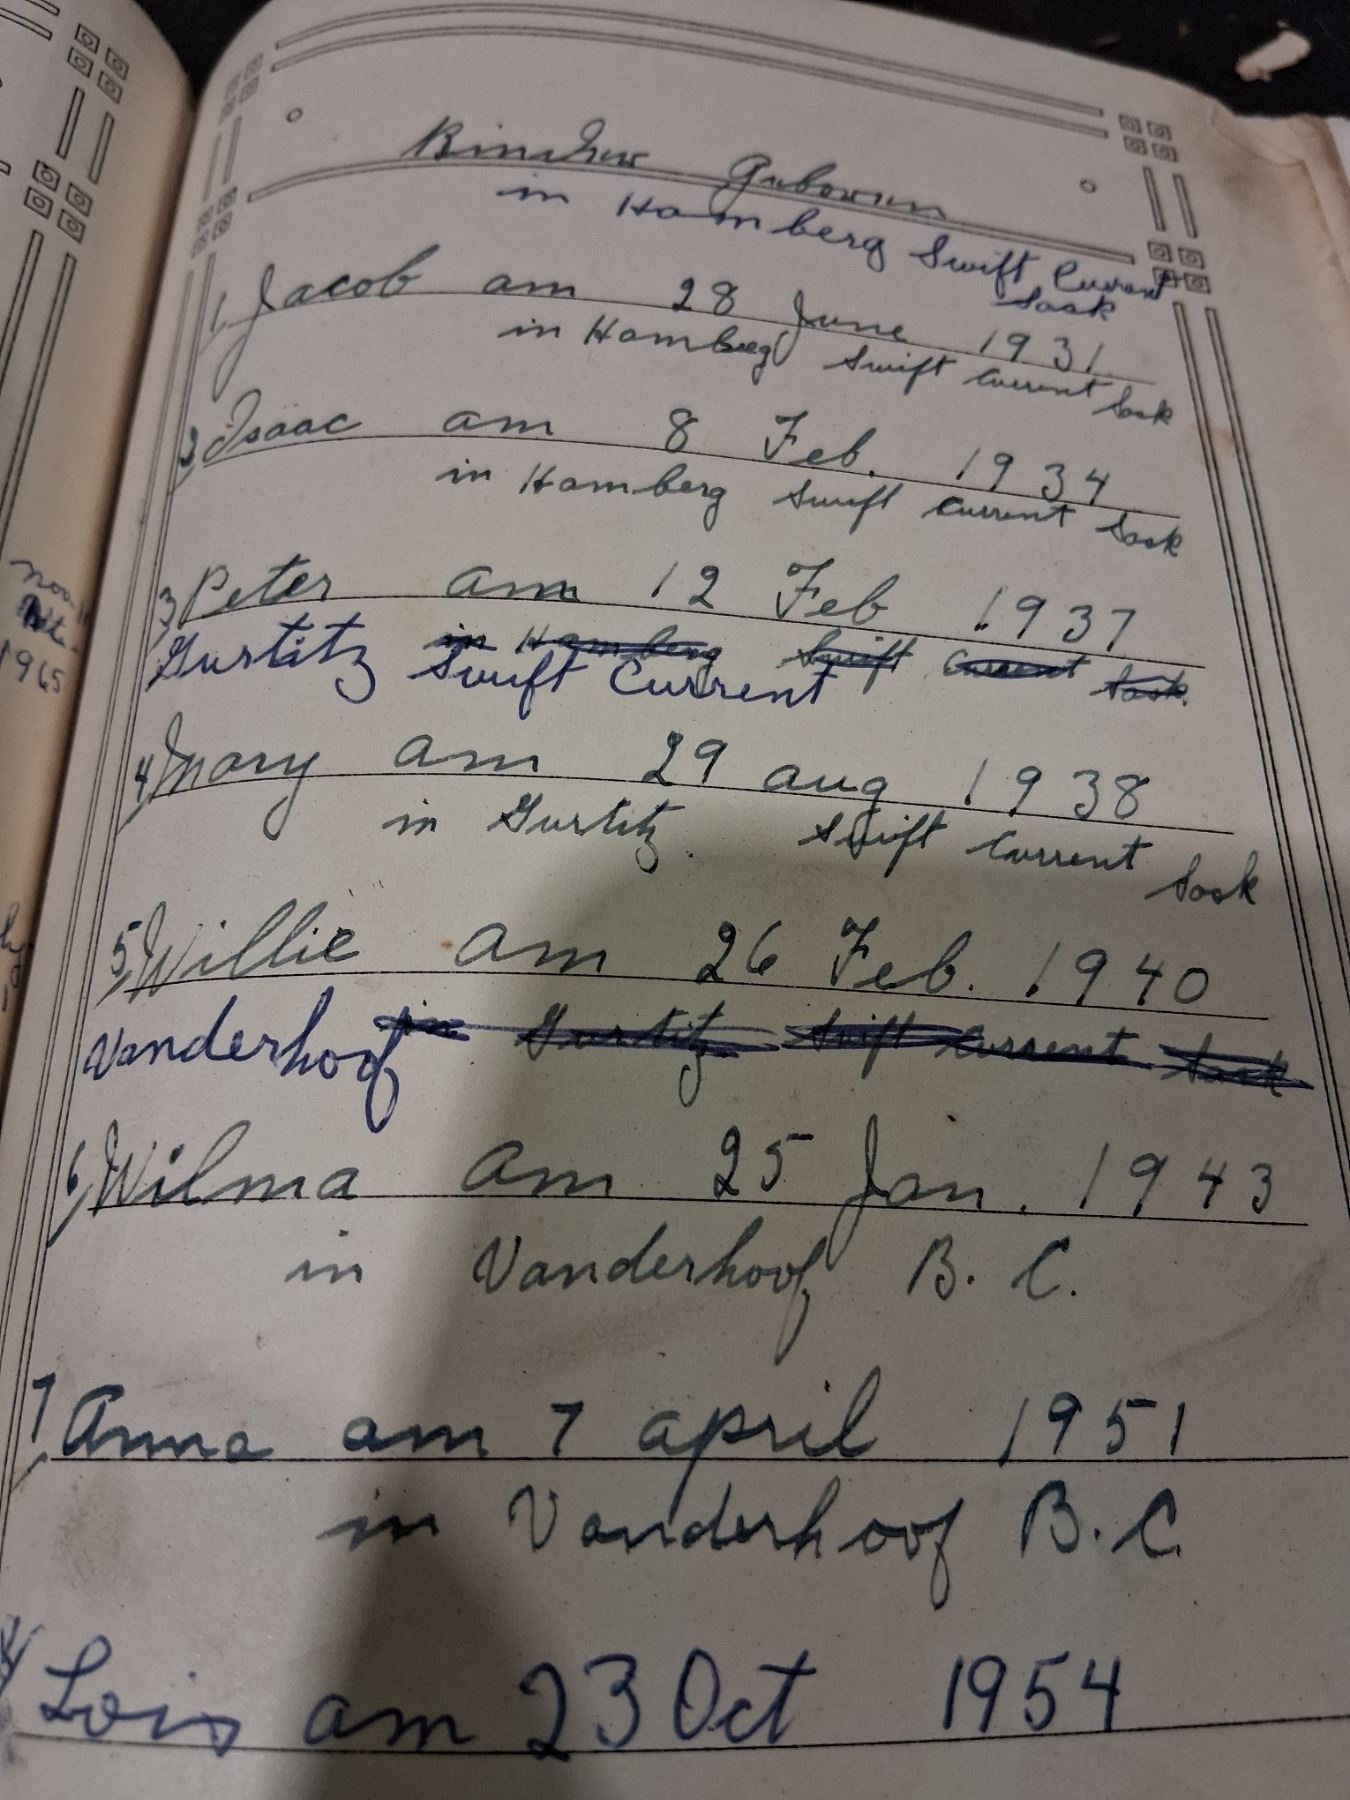 Kinder Geboren
in Hamberg Swift Current
Sask
1, Jacob am 28 June 1931
in Hamberg Swift Current Sask
2, Isaac am 8 Feb. 1934
in Hamberg Swift Current Sask
3, Peter am 12 Feb 1937
in Hamberg Swift Current Sask.
Gurtitz Swift Current
4, Mary am 29 aug 1938
in Gurtitz Swift Current Sask
5, Willie am 26 Feb. 1940
Vanderhoof in Gurtitz Swift Current Sask
6, Wilma am 25 Jan. 1943
in Vanderhoof B. C.
7, Anna am 7 april 1951
in Vanderhoof B. C.
Lois am 23 Oct 1954
nov.
1965